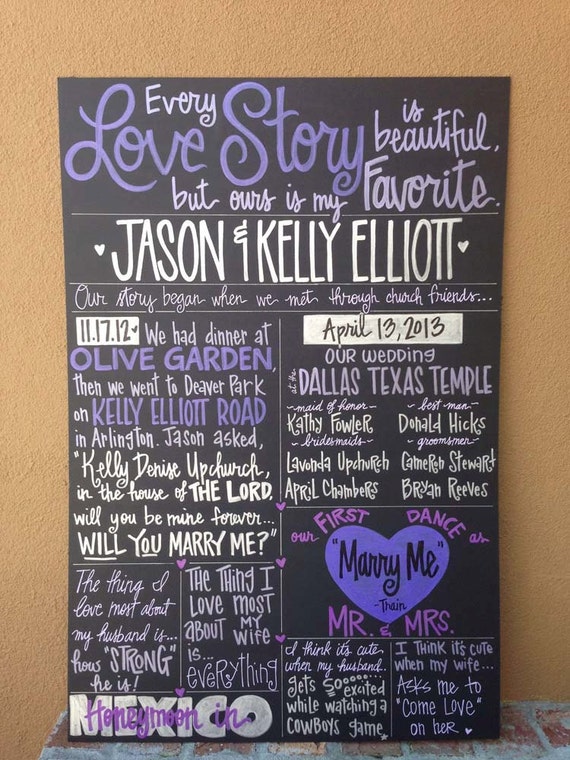 Every
Love Story is
beautiful,
but ours is my Favorite.
JASON & KELLY ELLIOTT
Our story began when we met through church friends...
11.17.12 We had dinner at
OLIVE GARDEN,
then we went to Deaver Park
on KELLY ELLIOTT ROAD
in Arlington. Jason asked,
"Kelly Denise Upchurch,
in the house of THE LORD,
will you be mine forever...
WILL YOU MARRY ME?"
April 13, 2013
OUR WEDDING
at the DALLAS TEXAS TEMPLE
~maid of honor~
Kathy Fowler
~bridesmaids~
Lavonda Upchurch
April Chambers
~best man~
Donald Hicks
~groomsmen~
Cameron Stewart
Bryan Reeves
our FIRST DANCE as
"Marry Me"
-Train
MR. & MRS.
The thing I
love most about
my husband is...
how "STRONG"
he is!
THE THING I
LOVE MOST
ABOUT MY WIFE
is...
everything
I think it's cute
when my husband...
gets SO ooooo... excited
while watching a
COWBOYS game.
I THINK IT'S CUTE
when my wife...
Asks me to
"COME LOVE"
on her.
Honeymoon in
MEXICO